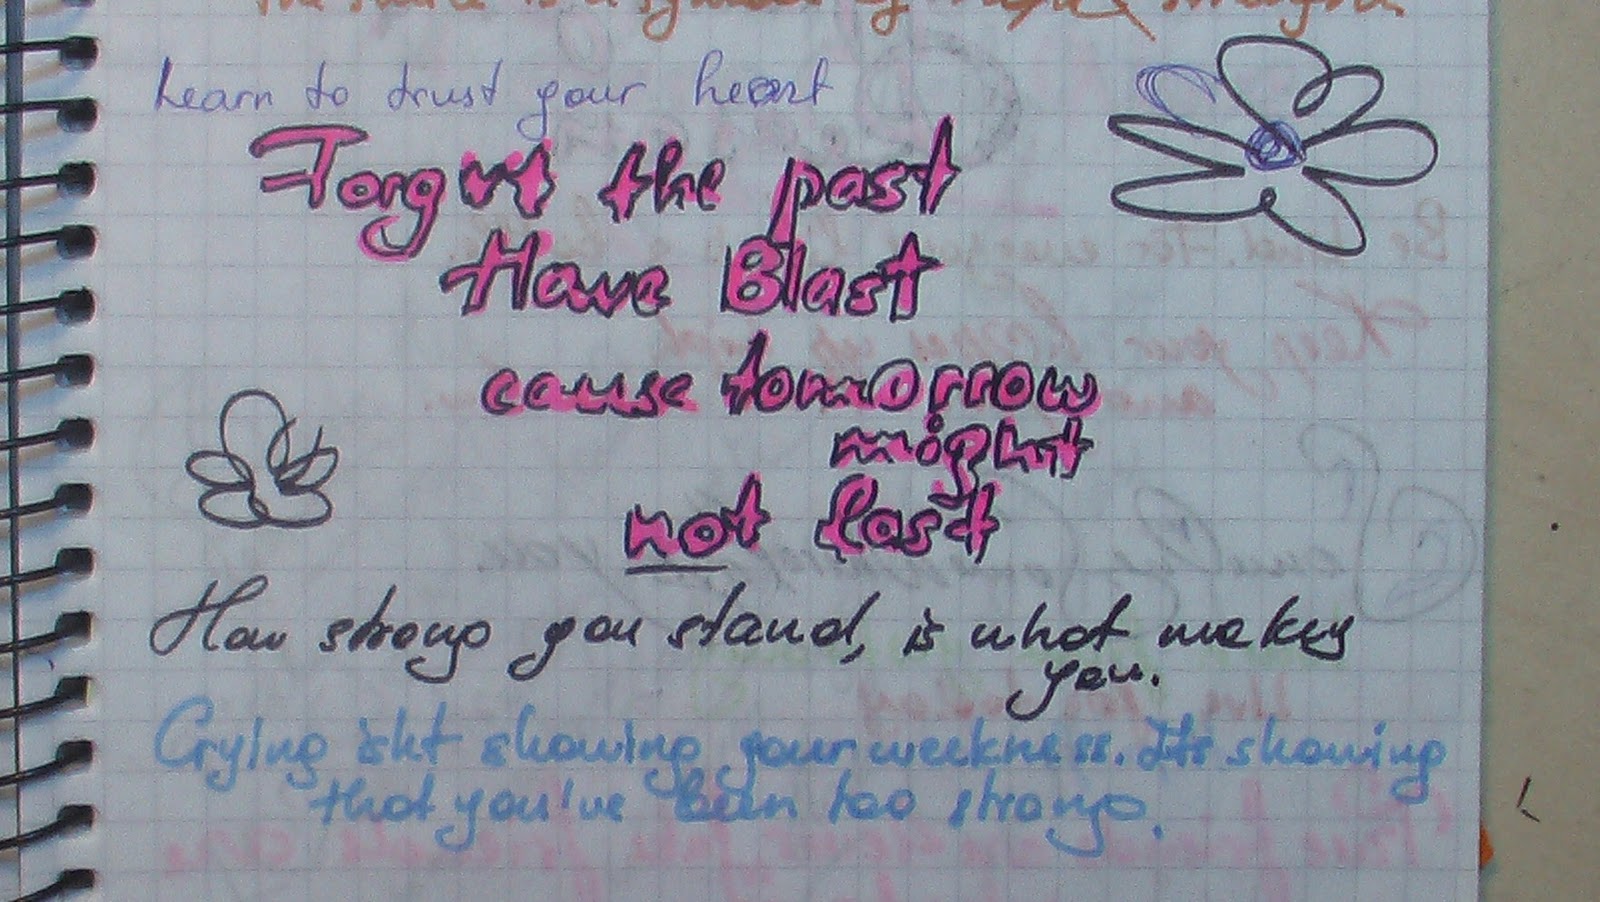 Learn to trust your heart
Forget the past
Have Blast
cause tomorrow
might
not last
How strong you stand, is what makes
you.
Crying isn't showing your weekness. It's showing
that you've been too strong.